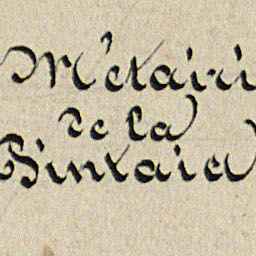 Métairi
de la
Bintaie